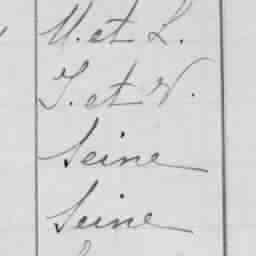 M. et L.
I. et V.
Seine
Seine